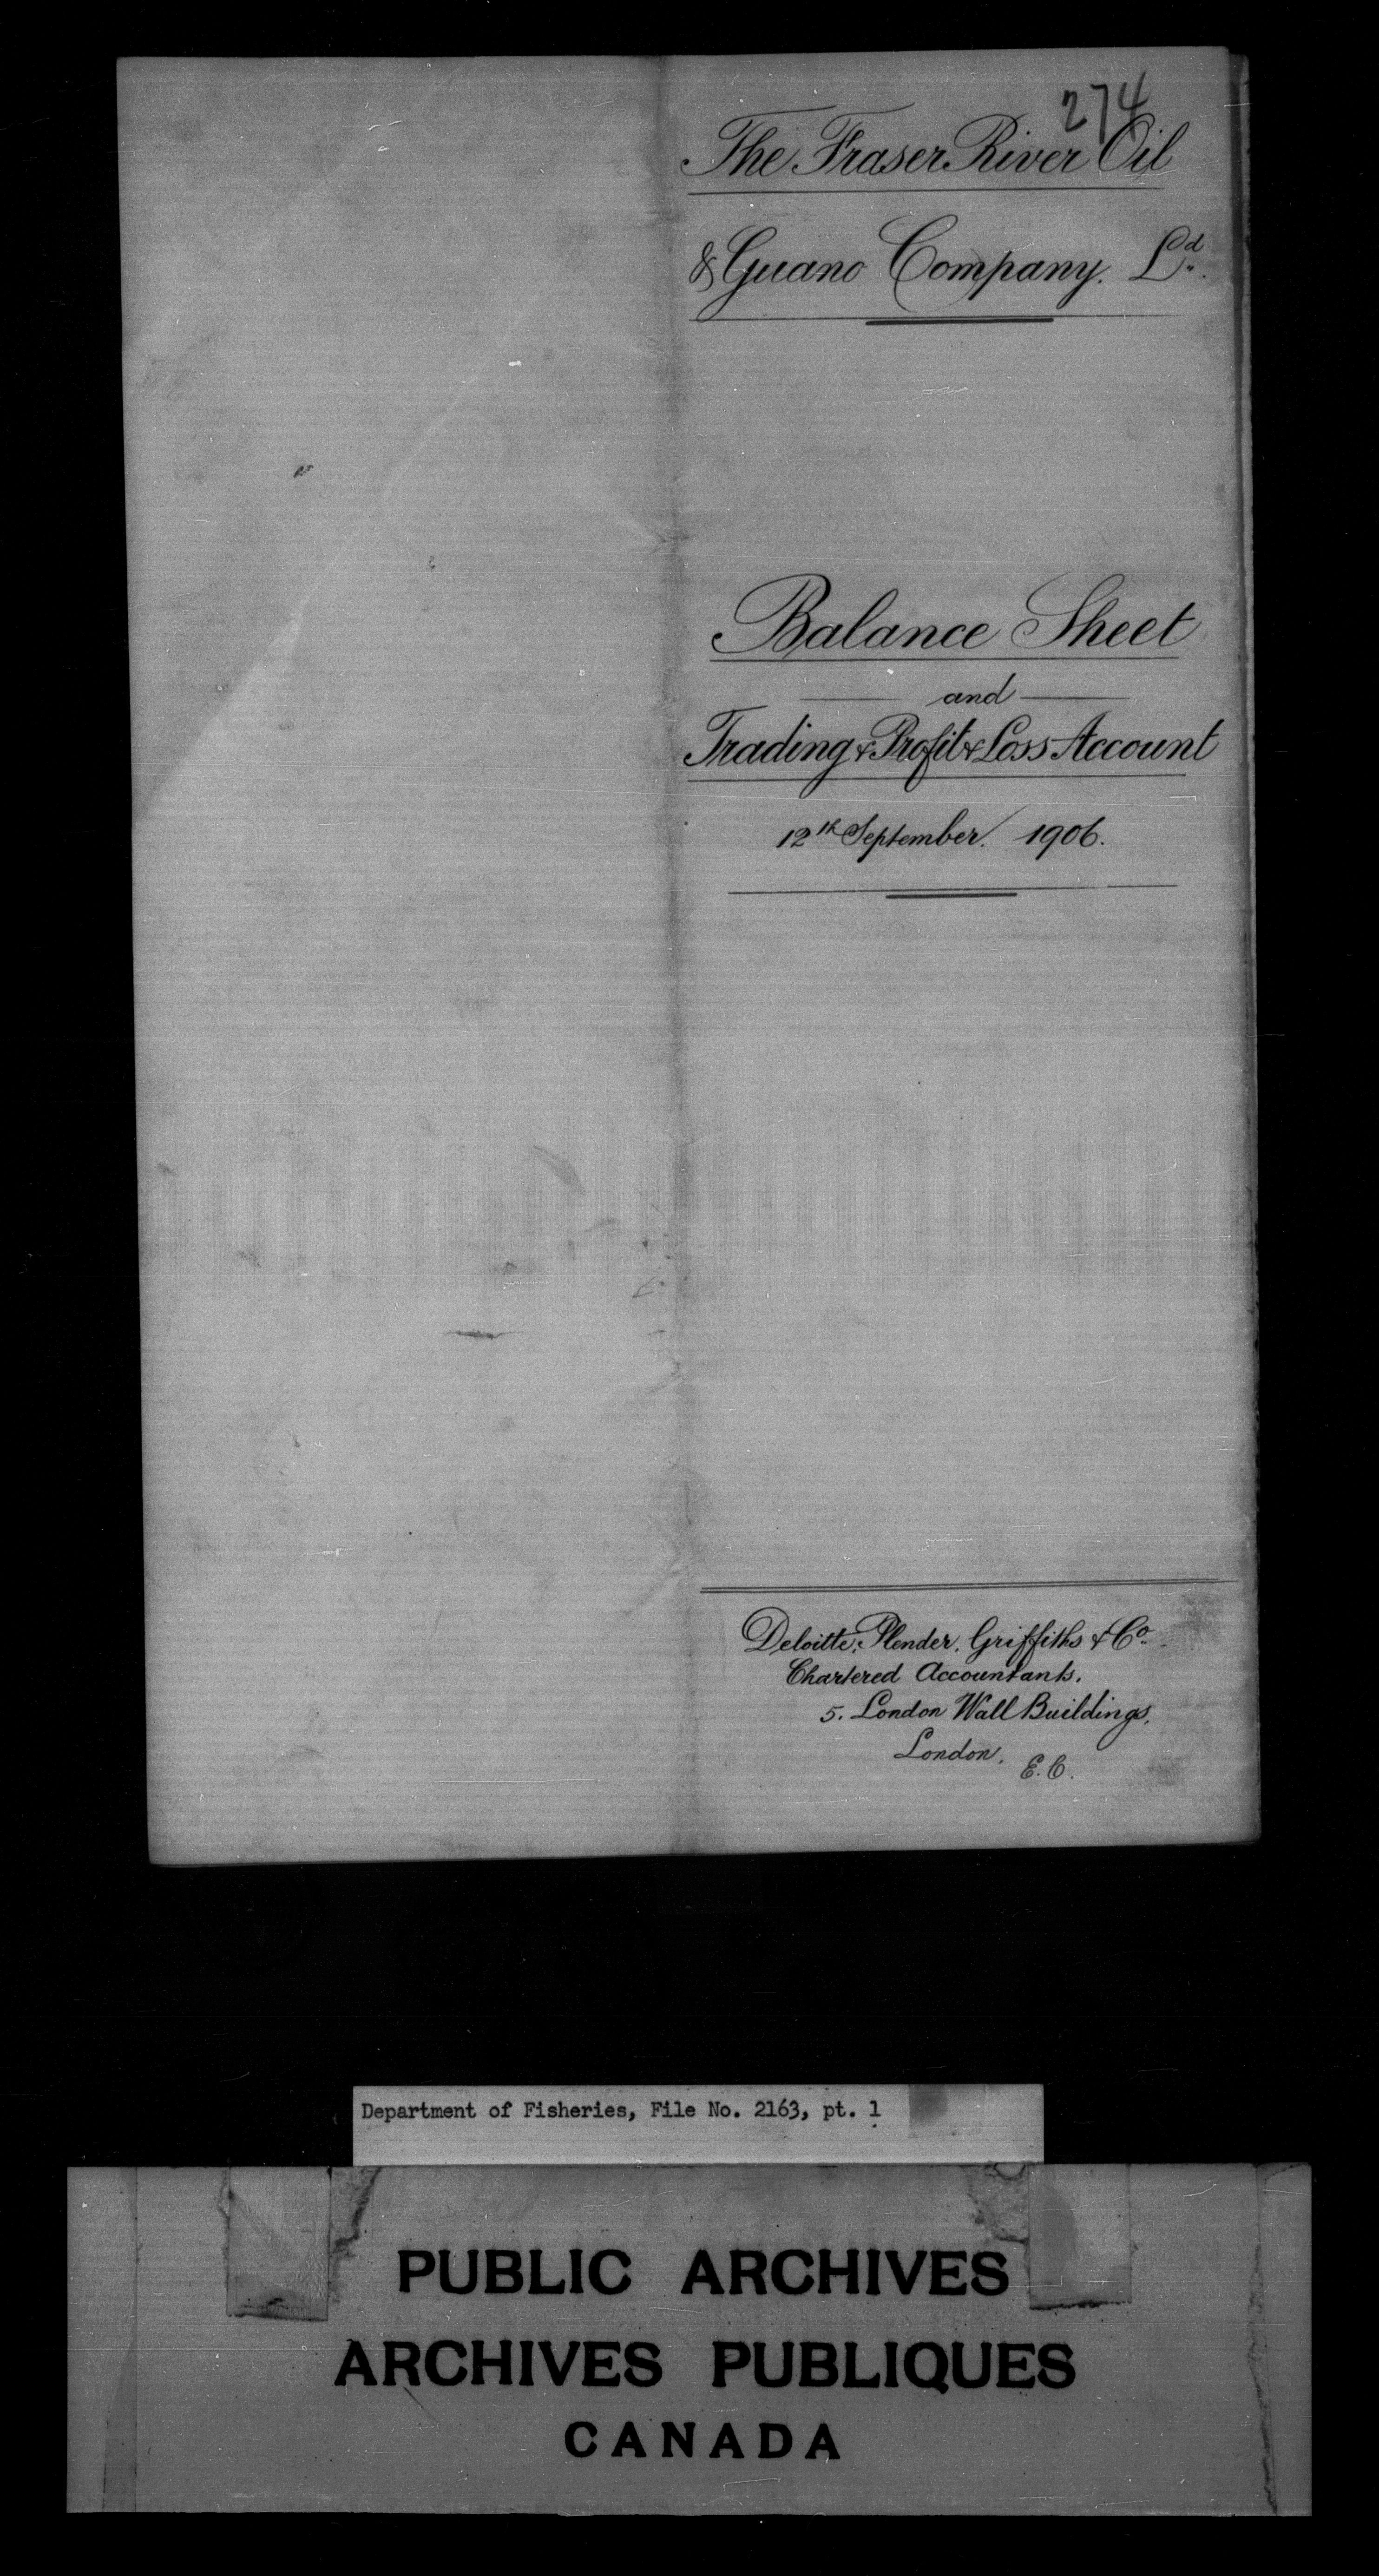 274
The Fraser River Oil
& Guano Company. Ld.
Balance Sheet
and
Trading & Profit & Loss Account
12th September. 1906.
Deloitte, Plender, Griffiths & Co.
Chartered Accountants.
5. London Wall Buildings,
London.
E.C.
Department of Fisheries, File No. 2163, pt. 1
PUBLIC ARCHIVES
ARCHIVES PUBLIQUES
CANADA